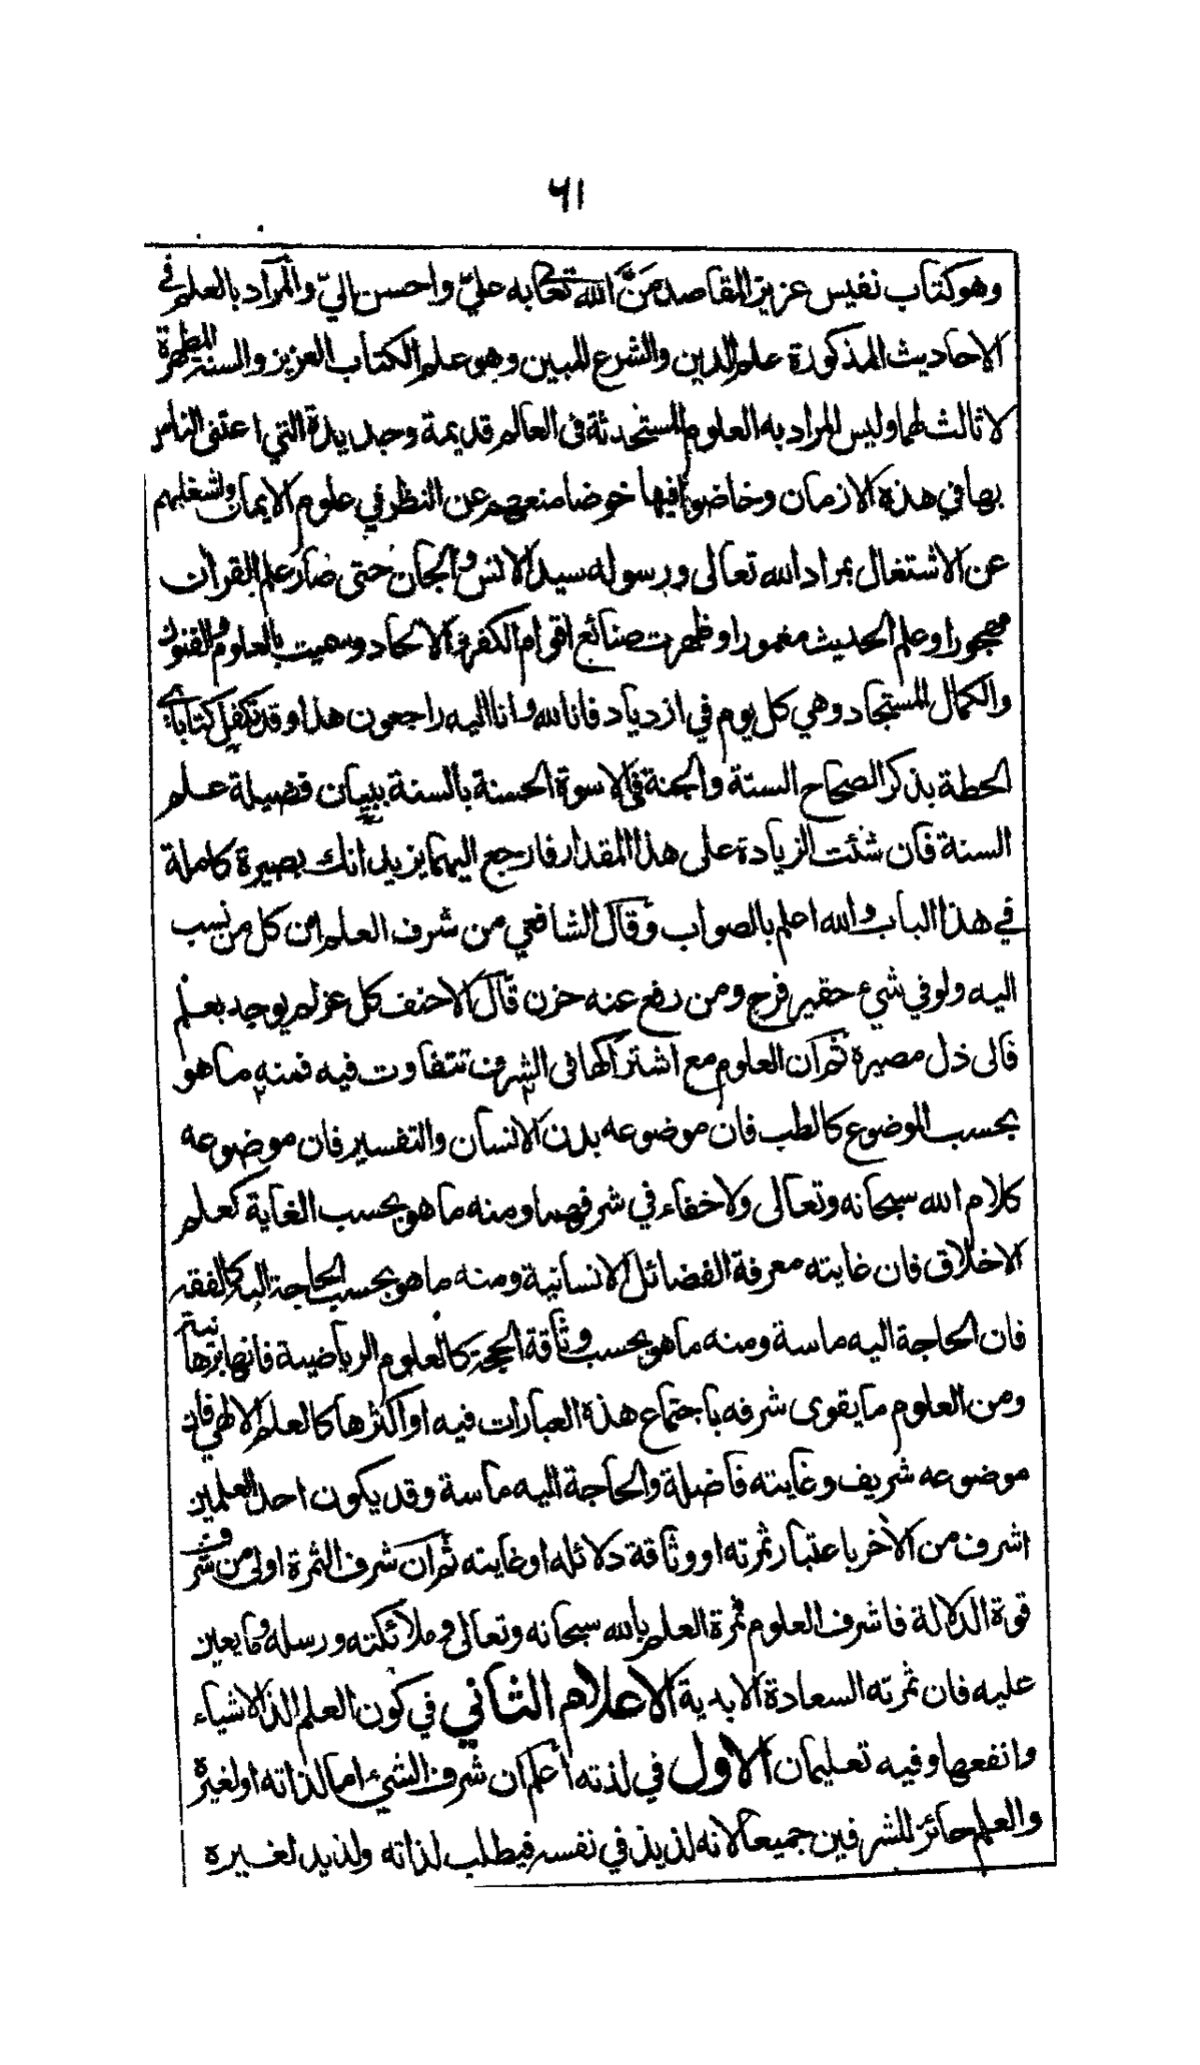 ٦١
وهو كتاب نفيس عزيز المقاصد مَنَّ الله تعالى به عليّ واحسن اليّ والمراد بالعلم في
الاحاديث المذكورة علم الدين والشرع المبين وهو علم الكتاب العزيز والسنة المطهرة
لا ثالث لهما وليس المراد به العلوم المستحدثة في العالم قديمة وجديدة التي اعتنى الناس
بها في هذه الازمان وخاضوا فيها خوضا منعهم عن النظر في علوم الايمان واشغلهم
عن الاشتغال بمراد الله تعالى ورسوله سيد الانس والجان حتى صار علم القرآن
مهجورا وعلم الحديث مغمورا وظهرت صنائع اقوام الكفرة والالحاد وسميت بالعلوم والفنون
والكمال المستجاد وهي كل يوم في ازدياد فانا لله وانا اليه راجعون هذا وقد تكفل كتاباي
الحطة بذكر الصحاح الستة والجنة في الاسوة الحسنة بالسنة ببيان فضيلة علم
السنة فان شئت الزيادة على هذا المقدار فارجع اليهما يزيدانك بصيرة كاملة
في هذا الباب والله اعلم بالصواب وقال الشافعي من شرف العلم ان كل من نسب
اليه ولو في شيء حقير فرح ومن رفع عنه حزن قال الاحنف كل عز لم يوجد بعلم
فالى ذل مصيره ثم ان العلوم مع اشتراكها في الشرف تتفاوت فيه فمنه ما هو
بحسب الموضوع كالطب فان موضوعه بدن الانسان والتفسير فان موضوعه
كلام الله سبحانه وتعالى ولا خفاء في شرفهما ومنه ما هو بحسب الغاية كعلم
الاخلاق فان غايته معرفة الفضائل الانسانية ومنه ما هو بحسب الحاجة اليه كالفقه
فان الحاجة اليه ماسة ومنه ما هو بحسب وثاقة الحجة كالعلوم الرياضية فانها برهانية
ومن العلوم ما يقوى شرفه باجتماع هذه العبارات فيه او اكثرها كالعلم الالهي فان
موضوعه شريف وغايته فاضلة والحاجة اليه ماسة وقد يكون احد العلمين
اشرف من الآخر باعتبار ثمرته او وثاقة دلائله او غايته ثم ان شرف الثمرة اولى من شرف
قوة الدلالة فاشرف العلوم ثمرة العلم بالله سبحانه وتعالى وملائكته ورسله وما يعين
عليه فان ثمرته السعادة الابدية الاعلام الثاني في كون العلم الذ الاشياء
وانفعها وفيه تعليمان الاول في لذته أعلم ان شرف الشيء اما لذاته او لغيره
والعلم حائز للشرفين جميعا لانه لذيذ في نفسه فيطلب لذاته ولذيذ لغيره